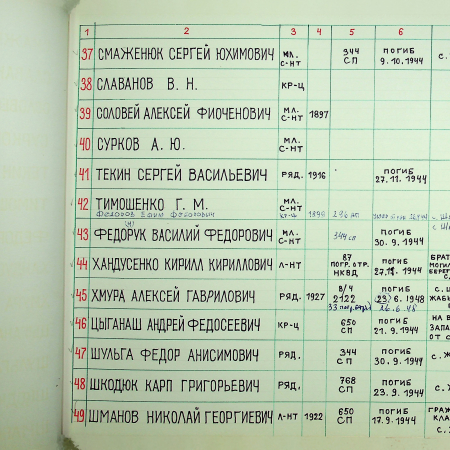 1 2 3 4 5 6
37 СМАЖЕНЮК СЕРГЕЙ ЮХИМОВИЧ МЛ. С-НТ 344 СП ПОГИБ 9.10.1944 С.
38 СЛАВАНОВ В. Н. КР-Ц
39 СОЛОВЕЙ АЛЕКСЕЙ ФИОЧЕНОВИЧ МЛ. С-НТ 1897
40 СУРКОВ А. Ю. МЛ. С-НТ
41 ТЕКИН СЕРГЕЙ ВАСИЛЬЕВИЧ РЯД. 1916 ПОГИБ 27.11.1944
42 ТИМОШЕНКО Г. М. МЛ. С-НТ
Федоров Ефим Федорович кр-ц
43 ФЕДОРУК ВАСИЛИЙ ФЕДОРОВИЧ МЛ. С-НТ 344 сп ПОГИБ 30.9.1944
44 ХАНДУСЕНКО КИРИЛЛ КИРИЛЛОВИЧ Л-НТ 87 ПОГР. ОТР. НКВД ПОГИБ 1944 БРАТ МОГИЛ БЕРЕГ
45 ХМУРА АЛЕКСЕЙ ГАВРИЛОВИЧ РЯД. 1927 В/Ч 2122 ПОГИБ (23) 6.1948 С. Ш ЖАБЫ
26.6.48
46 ЦЫГАНАШ АНДРЕЙ ФЕДОСЕЕВИЧ КР-Ц 650 СП ПОГИБ 21.9.1944 НА В ЗАПА ОТ С
47 ШУЛЬГА ФЕДОР АНИСИМОВИЧ РЯД. 344 СП ПОГИБ 30.9.1944 С. Ж
48 ШКОДЮК КАРП ГРИГОРЬЕВИЧ РЯД. 768 СП ПОГИБ 23.9.1944 С. Ж
49 ШМАНОВ НИКОЛАЙ ГЕОРГИЕВИЧ Л-НТ 1922 650 СП ПОГИБ 17.9.1944 ГРАЖ КЛА С.